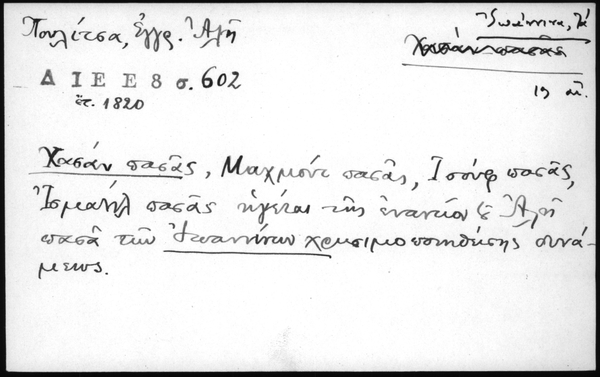 Πουλίτσα, Ἔγγρ. Ἀλῆ
Ἰωάννινα, τὰ
Χασὰν πασᾶς
Δ Ι Ε Ε 8 σ. 602
ἔτ. 1820
19 αἰ.
Χασὰν πασᾶς, Μαχμοὺτ πασᾶς, Ἰσοὺφ πασᾶς,
Ἰσμαὴλ πασᾶς ἡγέται τῆς ἐναντίον τοῦ Ἀλῆ
πασᾶ τῶν Ἰωαννίνων χρησιμοποιηθείσης δυνά-
μεως.